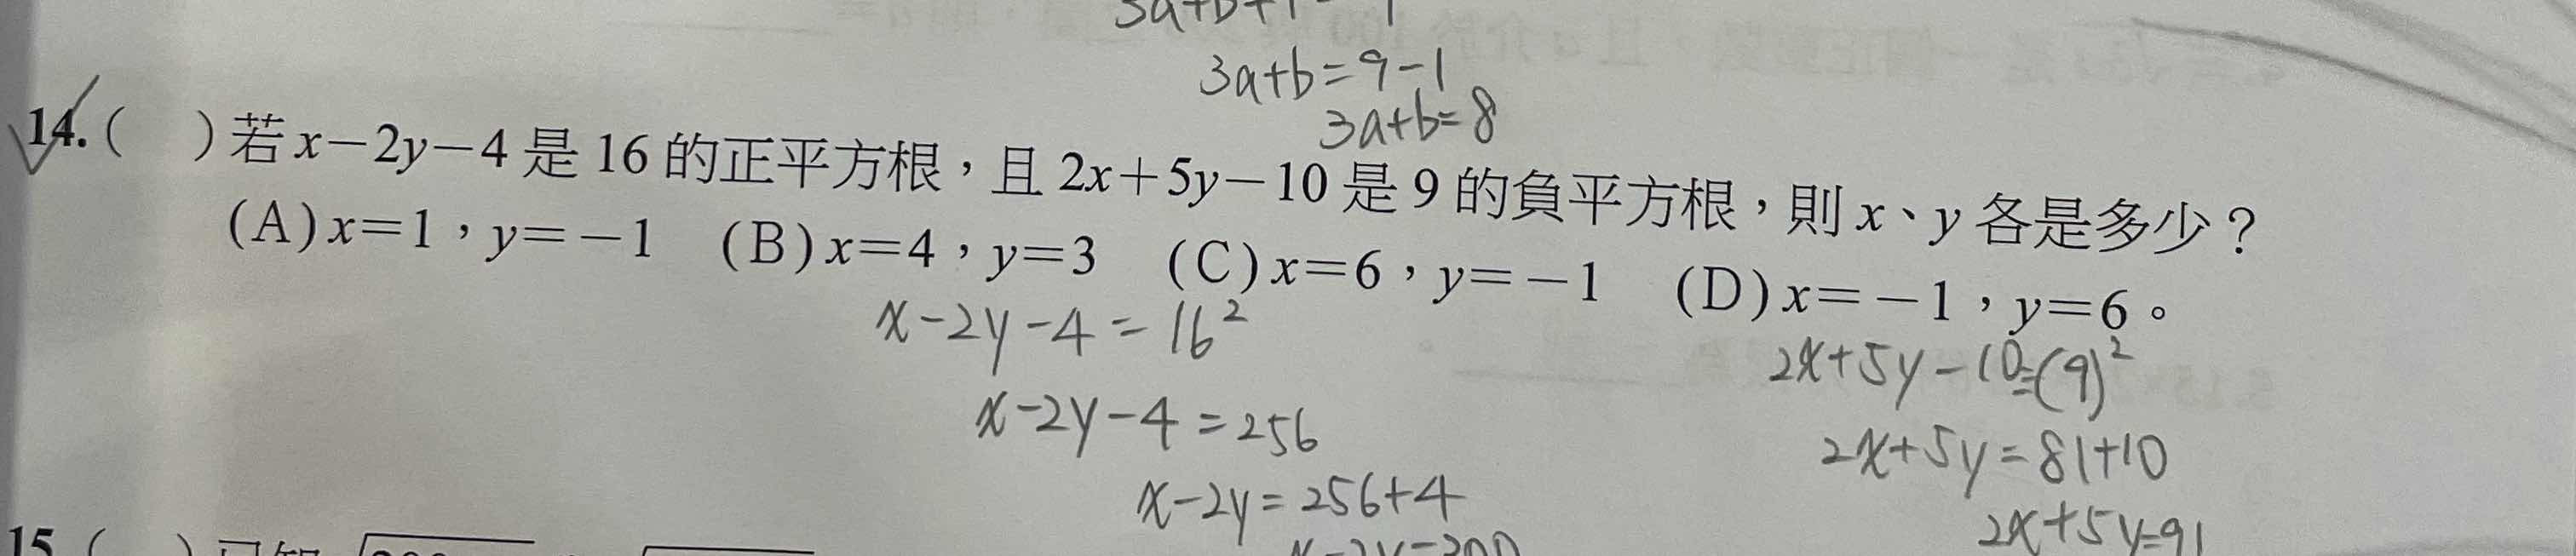 3a+b+1
3a+b=9-1
3a+b=8
14.( )若x-2y-4是16的正平方根，且2x+5y-10是9的負平方根，則x、y各是多少？
(A)x=1，y=-1 (B)x=4，y=3 (C)x=6，y=-1 (D)x=-1，y=6。
x-2y-4=16²
x-2y-4=256
x-2y=256+4
2x+5y-10=(9)²
2x+5y=81+10
2x+5y=91
15.( )已知